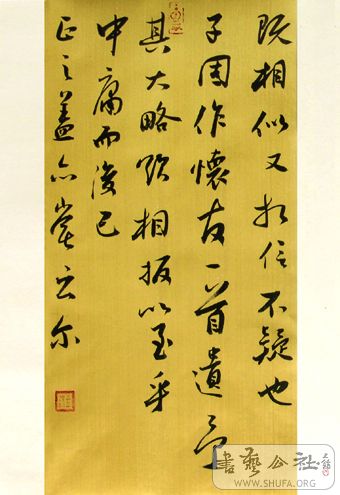 既相似又相信不疑也
子固作懷友一首遺予
其大略欲相扳以至乎
中庸而後已
正之蓋亦嘗云尔
書藝公社
WWW.SHUFA.ORG